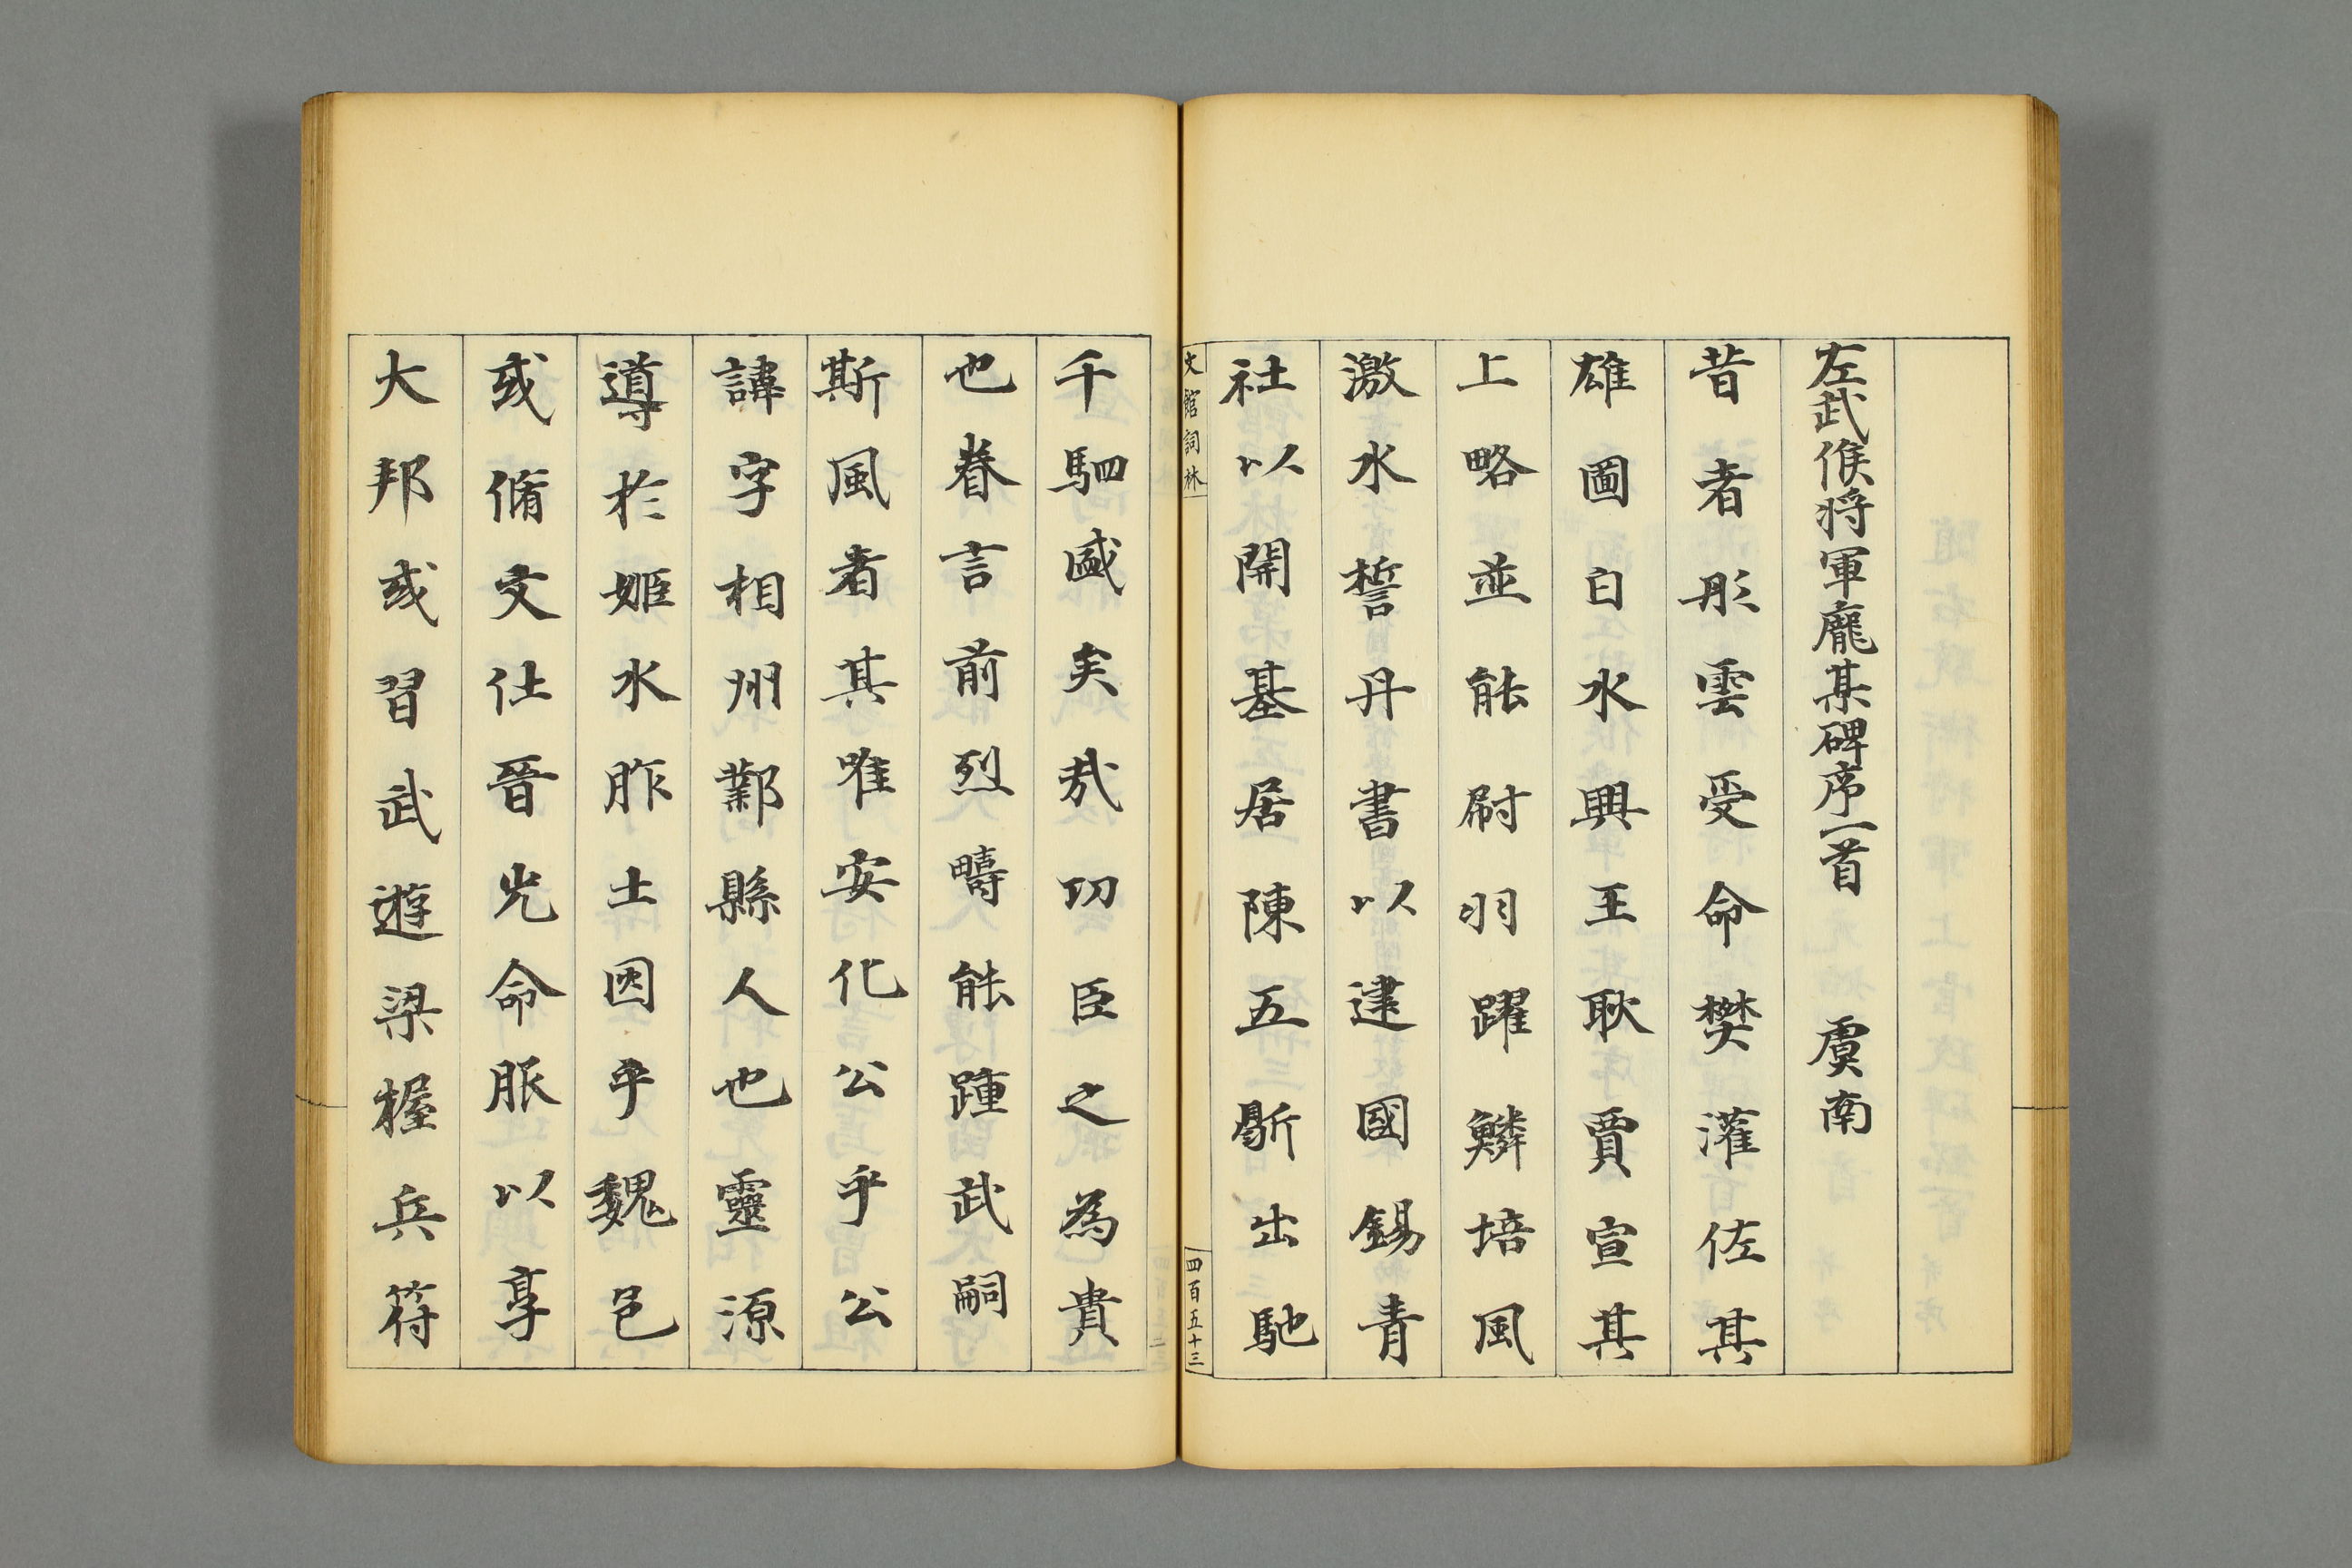 左武候將軍龐某碑序一首 虞南
昔者彤雲受命樊灌佐其
雄圖白水興王耿賈宣其
上略並能尉羽躍鱗培風
激水誓丹書以建國錫青
社以開基居陳五𣂪出馳
文館詞林 四百五十三
千駟盛矣哉功臣之為貴
也眷言前烈疇能踵武嗣
斯風者其唯安化公乎公
諱字相州鄴縣人也靈源
導於姬水胙土因乎魏邑
或脩文仕晉光命脤以享
大邦或習武遊梁握兵符